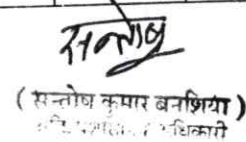 सन्तोष
( सन्तोष कुमार बनशिया )
अधिकारी